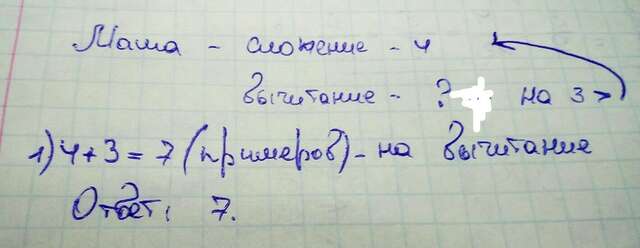 Маша - сложение - 4
Вычитание - ? на 3 >
1) 4+3=7 (примеров) - на вычитание
Ответ: 7.